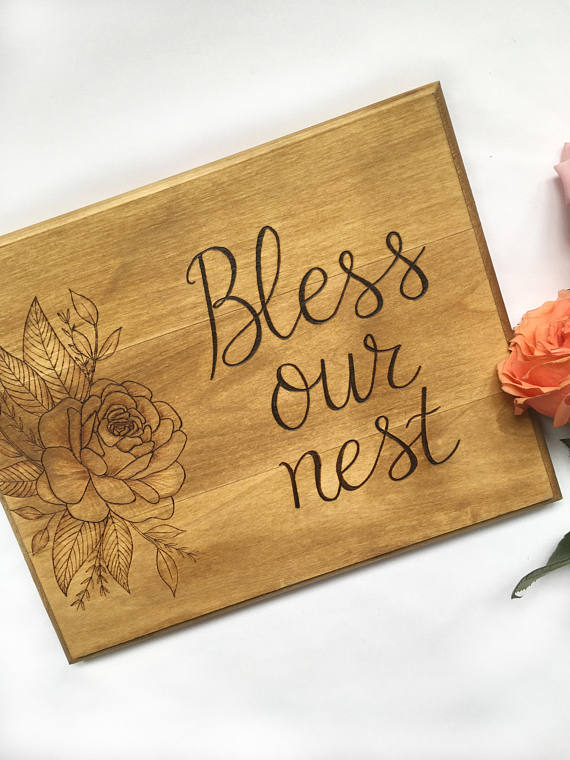 Bless
our
nest